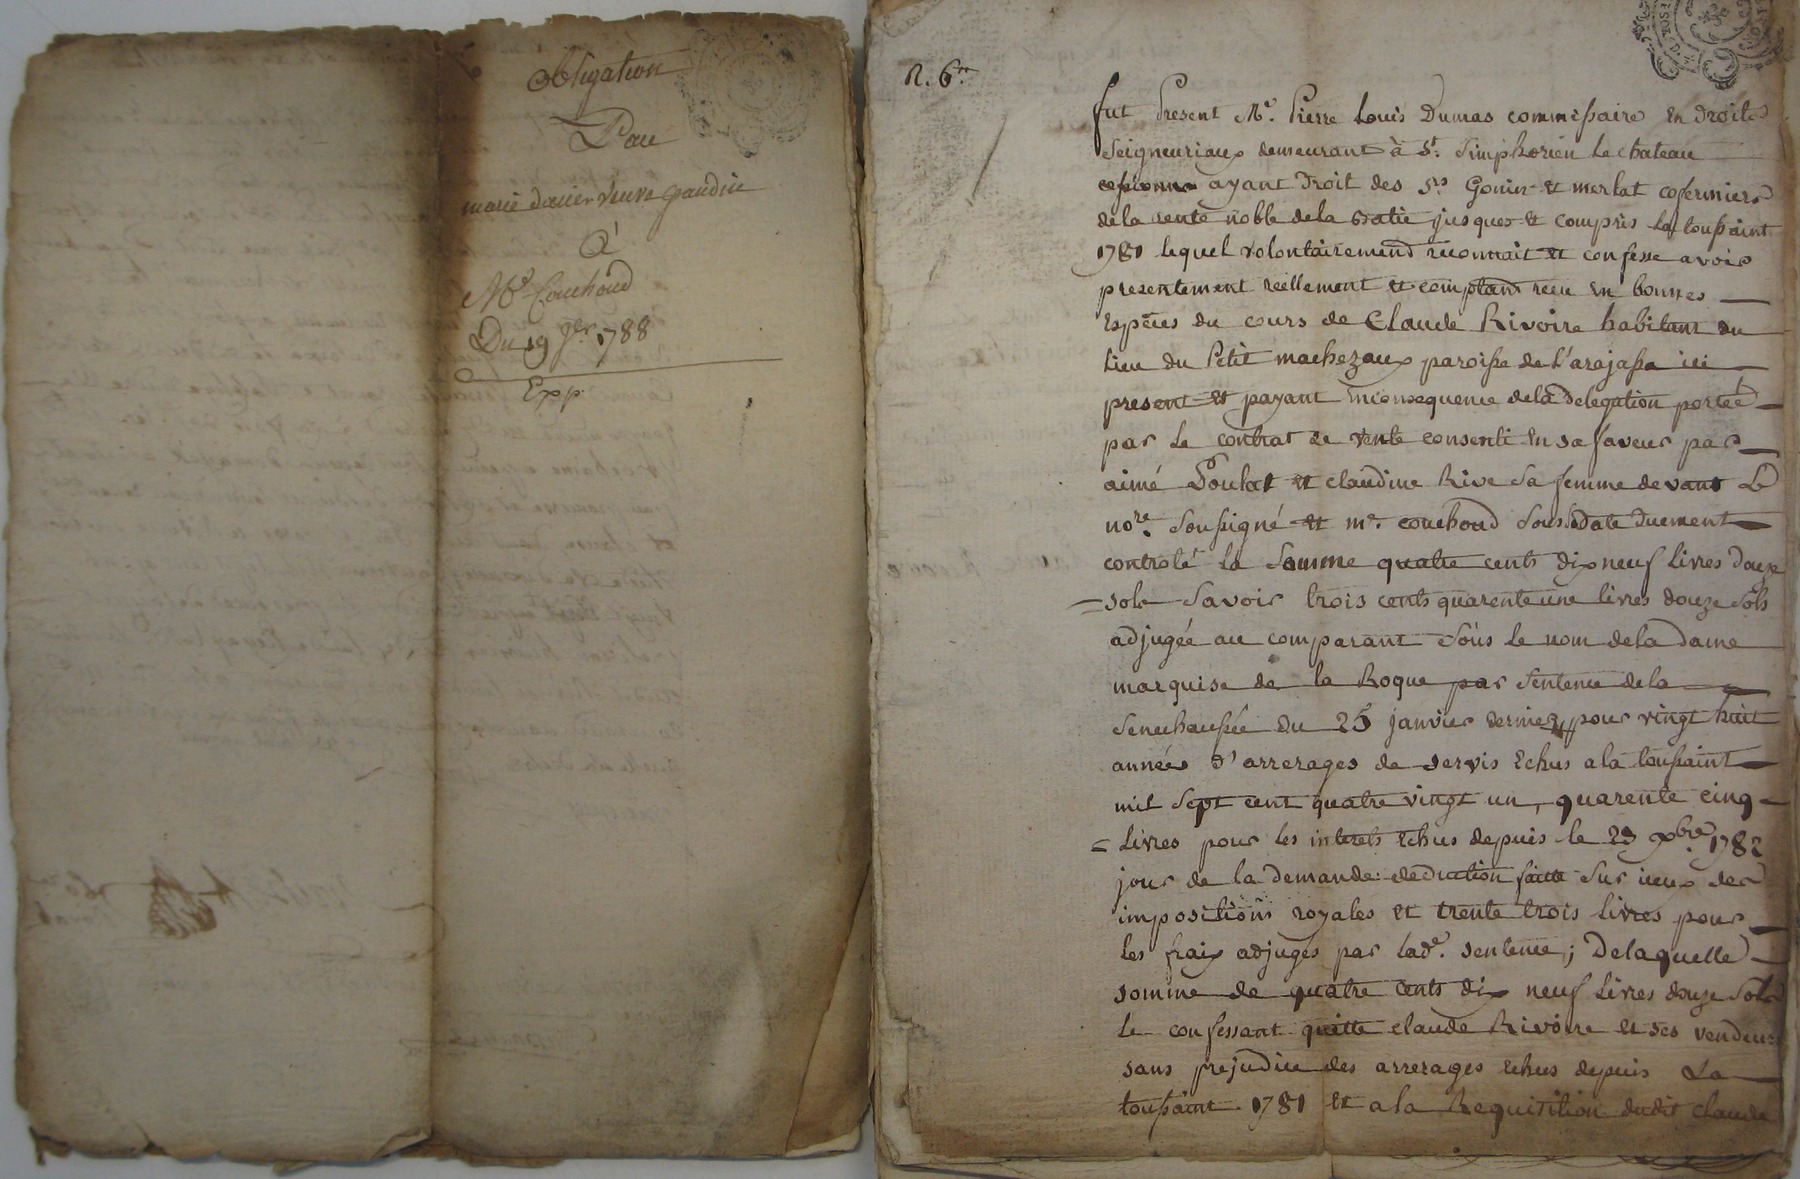 obligation
Par
marie dacier veuve gaudin
A
Me. Couchoud
Du 19 1788
Exp.
R. 6.
fut Present Me. Pierre Louis Dumas commissaire En droits
Seigneuriaux demeurant à St. Simphorien le chateau
ayant droit des Srs Gonin et merlat cofermiers
de la rente noble de la jusques et compris la toussaint
1781 lequel volontairement reconnait et confesse avoir
presentement réellement et comptant reçu en bonnes
Espèces du cours de Claude Rivoire habitant du
lieu du Petit machezaux paroisse de l'arajassa ici
present et payant enconsequence dela delegation portée
par le contrat de vente consenti en sa faveur par
aimé Poulat et claudine Rive sa femme devant Le
nore. soussigné et me. couchoud sous date duement
controlé la Somme quatre cents dix neuf livres douze
sols Savoir trois cents quarente une livres douze sols
adjugée au comparant sous le nom dela dame
marquise de la Roque par sentence dela
Senechaussée du 25 janvier dernier pour vingt huit
années d'arrerages de servis Echus a la toussaint
mil sept cent quatre vingt un, quarente cinq
livres pour les interets echus depuis le 23 xbre 1782
jour de la demande deduction faitte sur iceux des
impositions royales et trente trois livres pour
les fraix adjugés par lade. sentence; delaquelle
somme de quatre cents dix neuf livres douze sols
le confessant quitte claude Rivoire et ses vendeurs
sans prejudice des arrerages echus depuis La
toussaint 1781 et a la Requisition dudit Claude